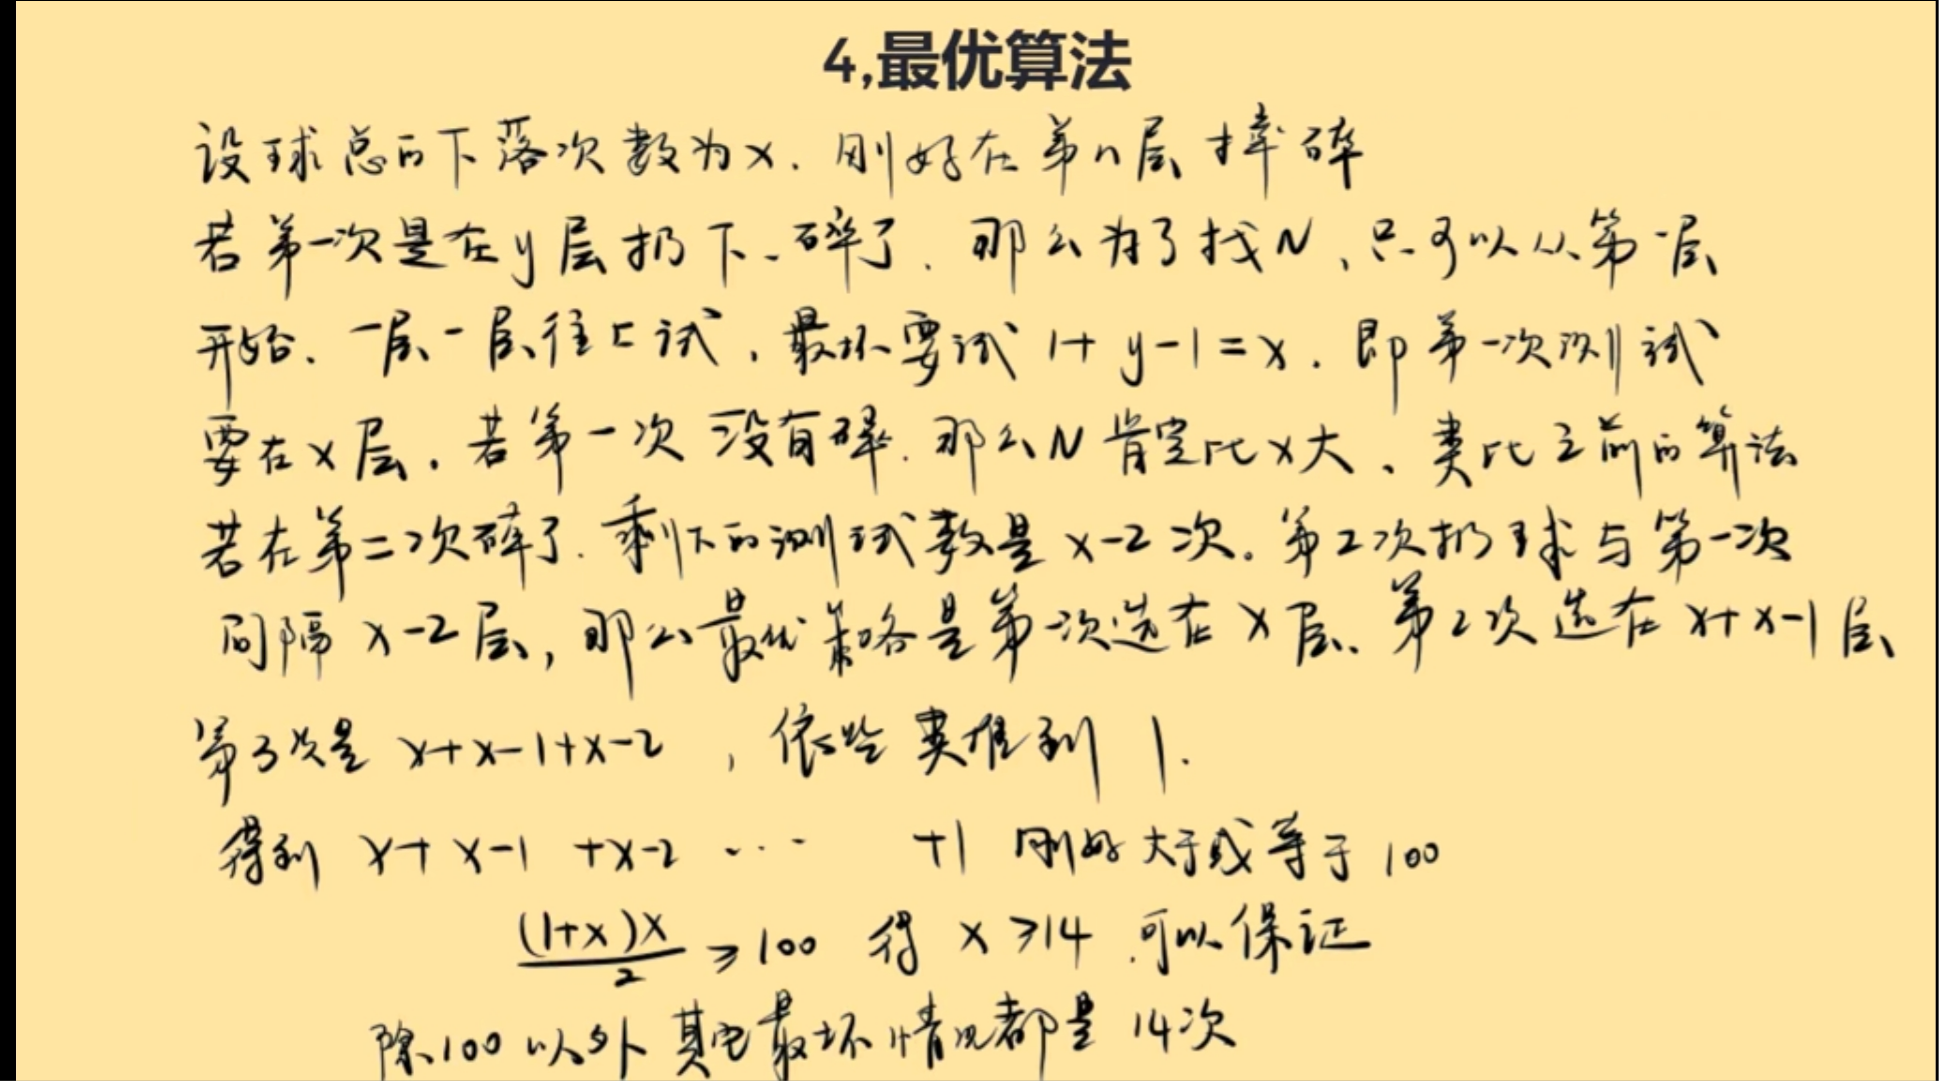 4,最优算法
设球总的下落次数为x. 刚好在第n层摔碎
若第一次是在y层扔下、碎了. 那么为了找N、只可以从第一层
开始、一层一层往上试、最坏要试 1+y-1=x. 即第一次测试
要在x层. 若第一次没有碎. 那么N肯定比x大、类比之前的算法
若在第二次碎了. 剩下的测试数是x-2次。第2次扔球与第一次
间隔x-2层, 那么最优策略是第一次选在x层、第2次选在x+x-1层
第3次是 x+x-1+x-2 , 依此类推到 1.
得到 x+x-1 +x-2 ··· +1 刚好大于或等于100
(1+x)x/2 ≥100 得 x≥14 .可以保证
除100以外其它最坏情况都是14次